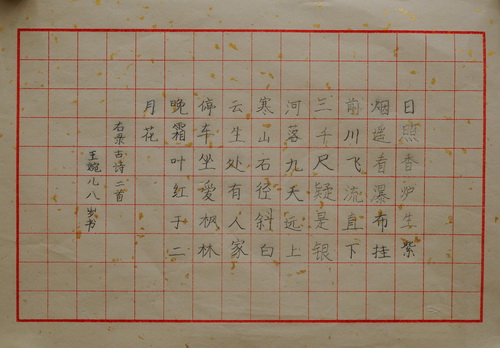 日照香炉生紫
烟遥看瀑布挂
前川飞流直下
三千尺疑是银
河落九天远上
寒山石径斜白
云生处有人家
停车坐爱枫林
晚霜叶红于二
月花
右录古诗二首
王婉儿八岁书